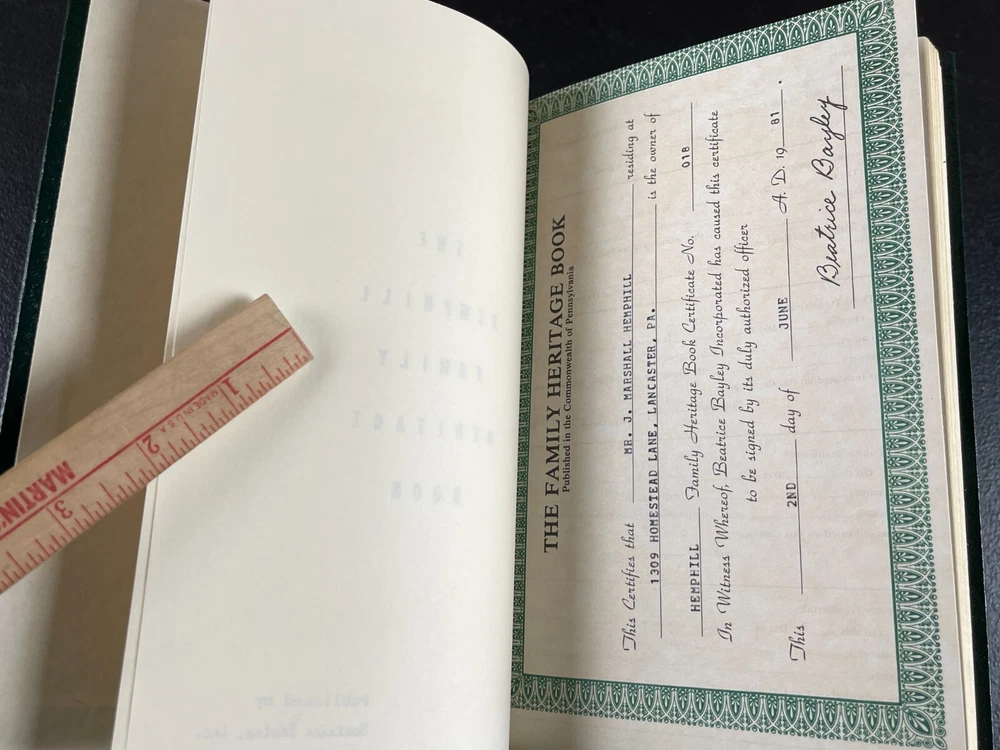 THE FAMILY HERITAGE BOOK
Published in the Commonwealth of Pennsylvania
This Certifies that MR. J. MARSHALL HEMPHILL residing at
1309 HOMESTEAD LANE, LANCASTER, PA. is the owner of
HEMPHILL Family Heritage Book Certificate No. 018
In Witness Whereof, Beatrice Bayley Incorporated has caused this certificate
to be signed by its duly authorized officer
This 2ND day of JUNE A. D. 19 81.
Beatrice Bayley
THE
HEMPHILL
FAMILY
HERITAGE
BOOK
Published by
Beatrice Bayley, Inc.
1 2 3
MADE IN U.S.A.
MARTIN'S